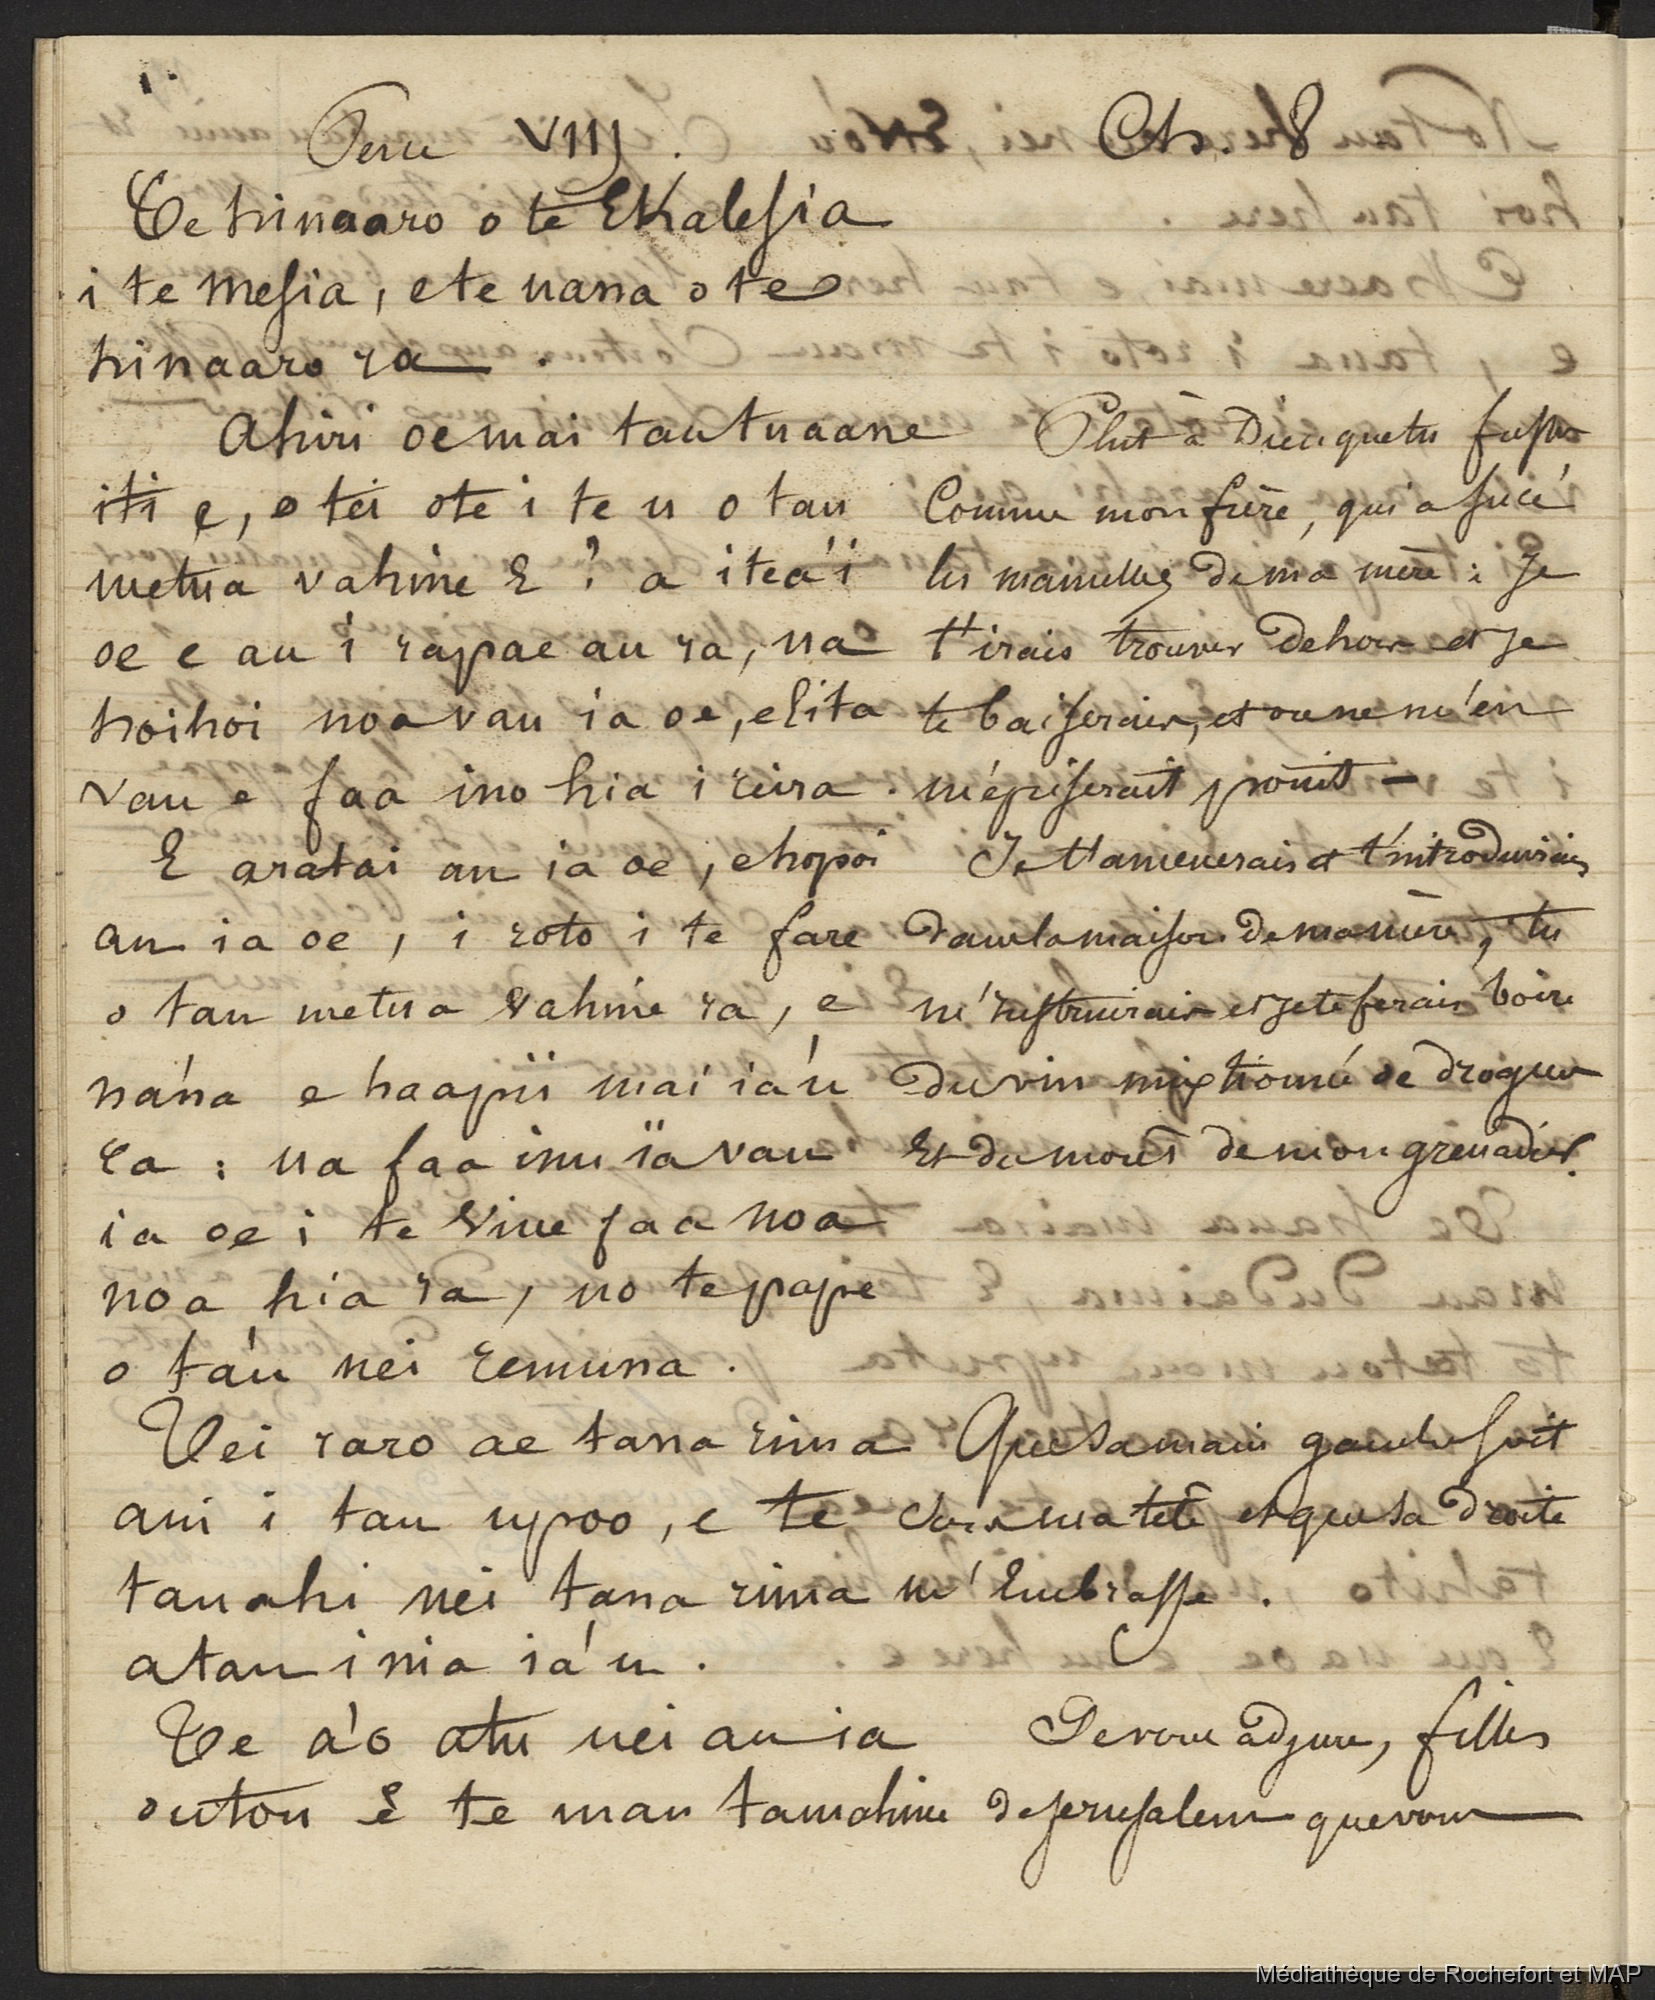 Penu VIIJ.
Te hinaaro o te Ekalesia
i te Mesia, e te nana o te
hinaaro ra.
Ahiri oe mai tau tuaane
iti e, o tei ote i te u o tau
metua vahine E? a itea'i
oe e au i rapae au ra, na
hoihoi noa vau ia oe, e lita
vau e faa ino hia i reira.
E aratai au ia oe, e hopoi
au ia oe, i roto i te fare
o tau metua vahine ra, e
na'na e haapii mai ia'u
ra: na faa inu ïa vau
ia oe i te vine faa noa
noa hia ra, no te pape
o ta'u nei remuna.
Tei raro ae tana rima
aui i tau upoo, e te
tauahi nei tana rima
atau i nia ia'u.
Te a'o atu nei au ia
outou E te mau tamahine
Ch. 8
Plut à Dieu que tu fusses
Comme mon frère, qui a sucé
les mamelles de ma mère: Je
t'irais trouver dehors et je
te baiserais, et on ne m'en
mépriserait point –
Je t'amenerais et t'introduirais
dans la maison de ma mère, tu
m'instruirais et je te ferais boire
du vin mixtionné de drogues
Et du moût de mon grenadier.
Que sa main gauche soit
sous ma tête et que sa droite
m'Embrasse.
Je vous adjure, filles
de Jerusalem que vous
Médiathèque de Rochefort et MAP